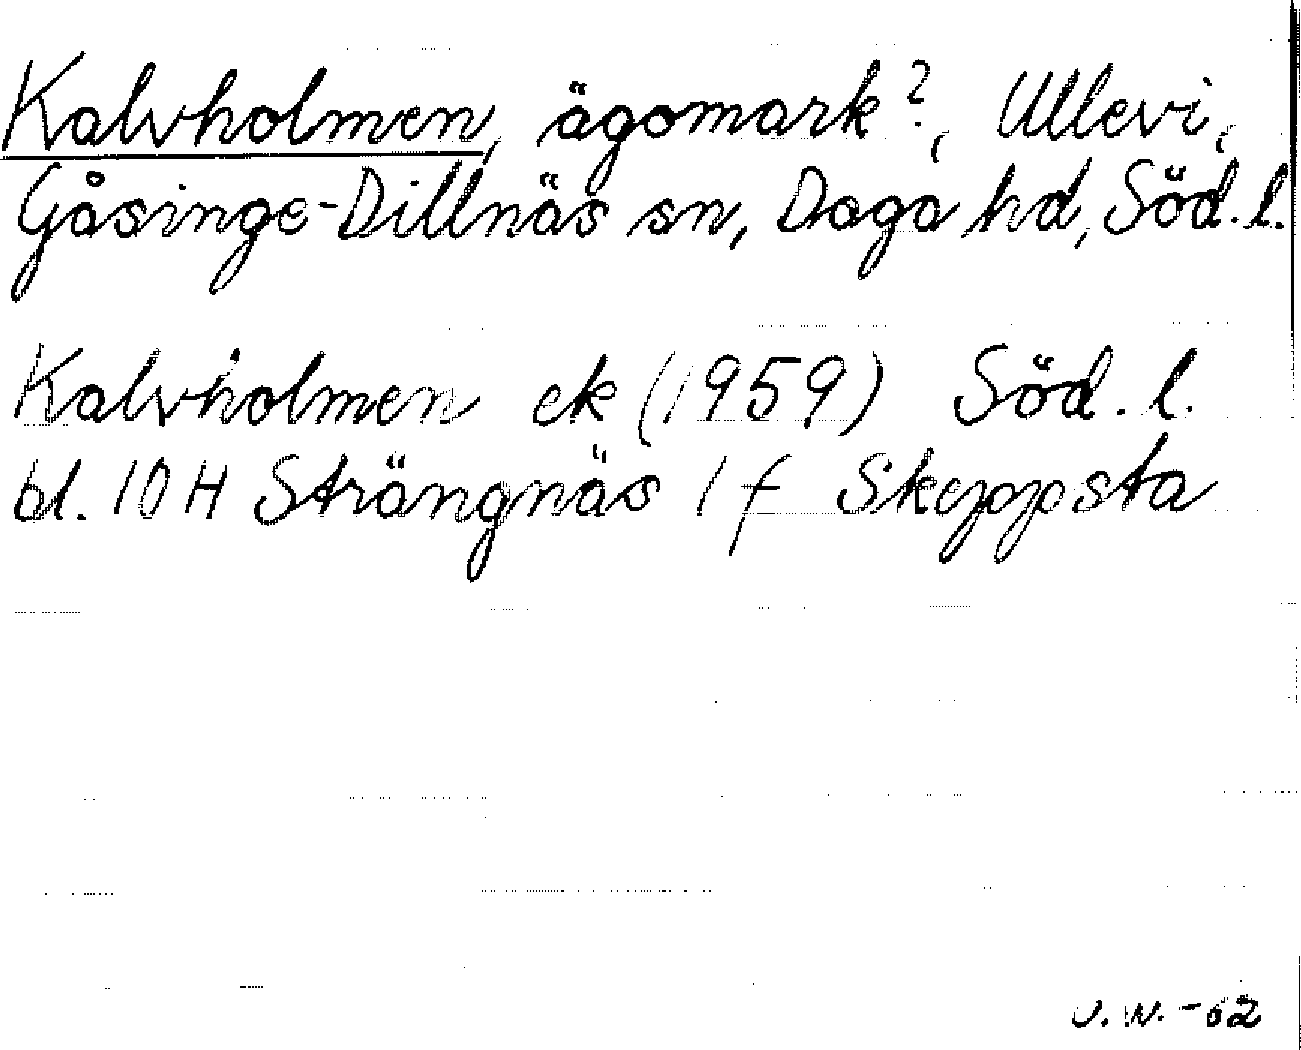 Kalvholmen, ägomark?, Ullevi,
Gåsinge-Dillnäs sn, Daga hd, Söd. l.
Kalvholmen ek (1959) Söd. l.
bl. 10 H Strängnäs 1 f Skeppsta
U.W. - 62